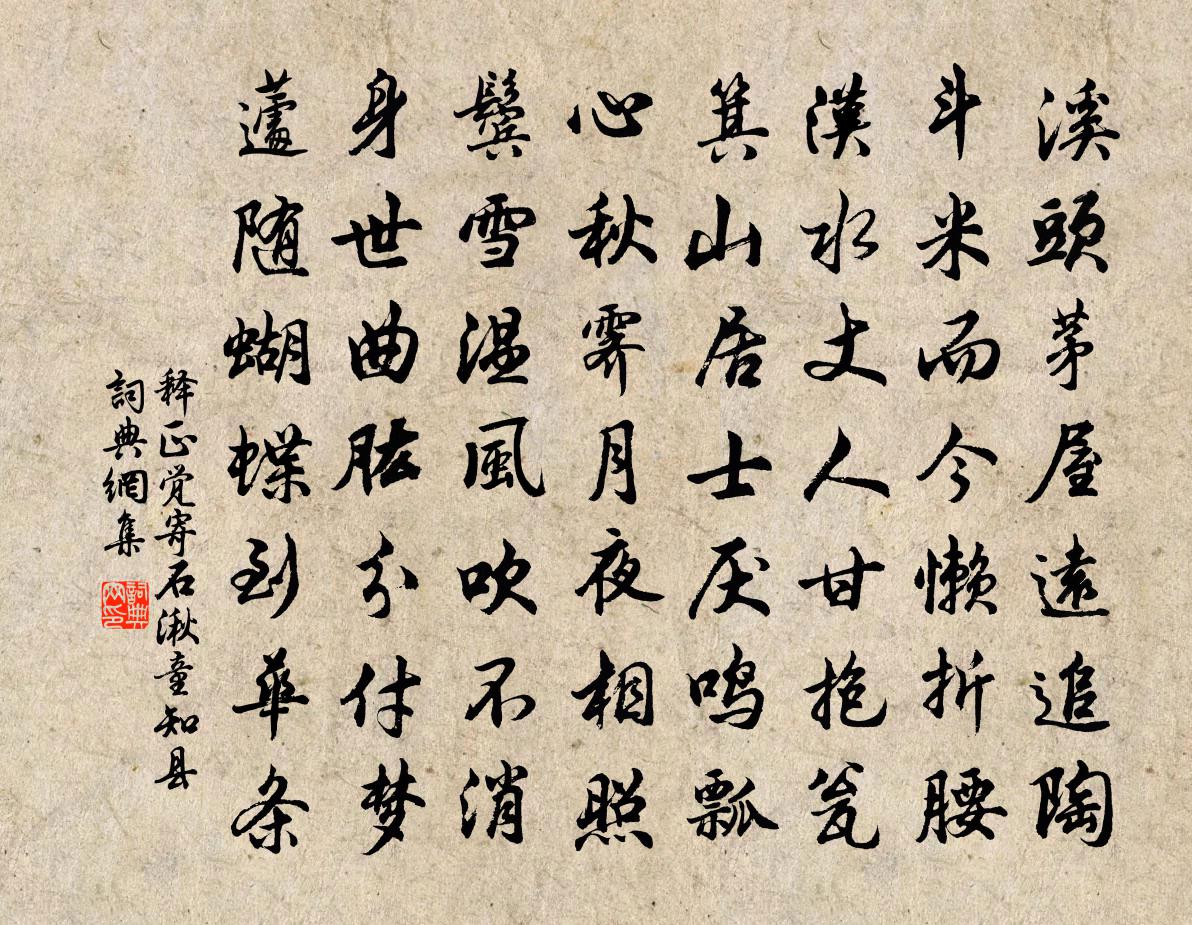 溪頭茅屋遠追陶
斗米而今懒折腰
漢水丈人甘抱瓮
箕山居士厌鸣瓢
心秋霁月夜相照
鬓雪温風吹不消
身世曲肱分付梦
蘧随蝴蝶到華条
释正觉寄石湫童知县
詞典網集
詞典网印